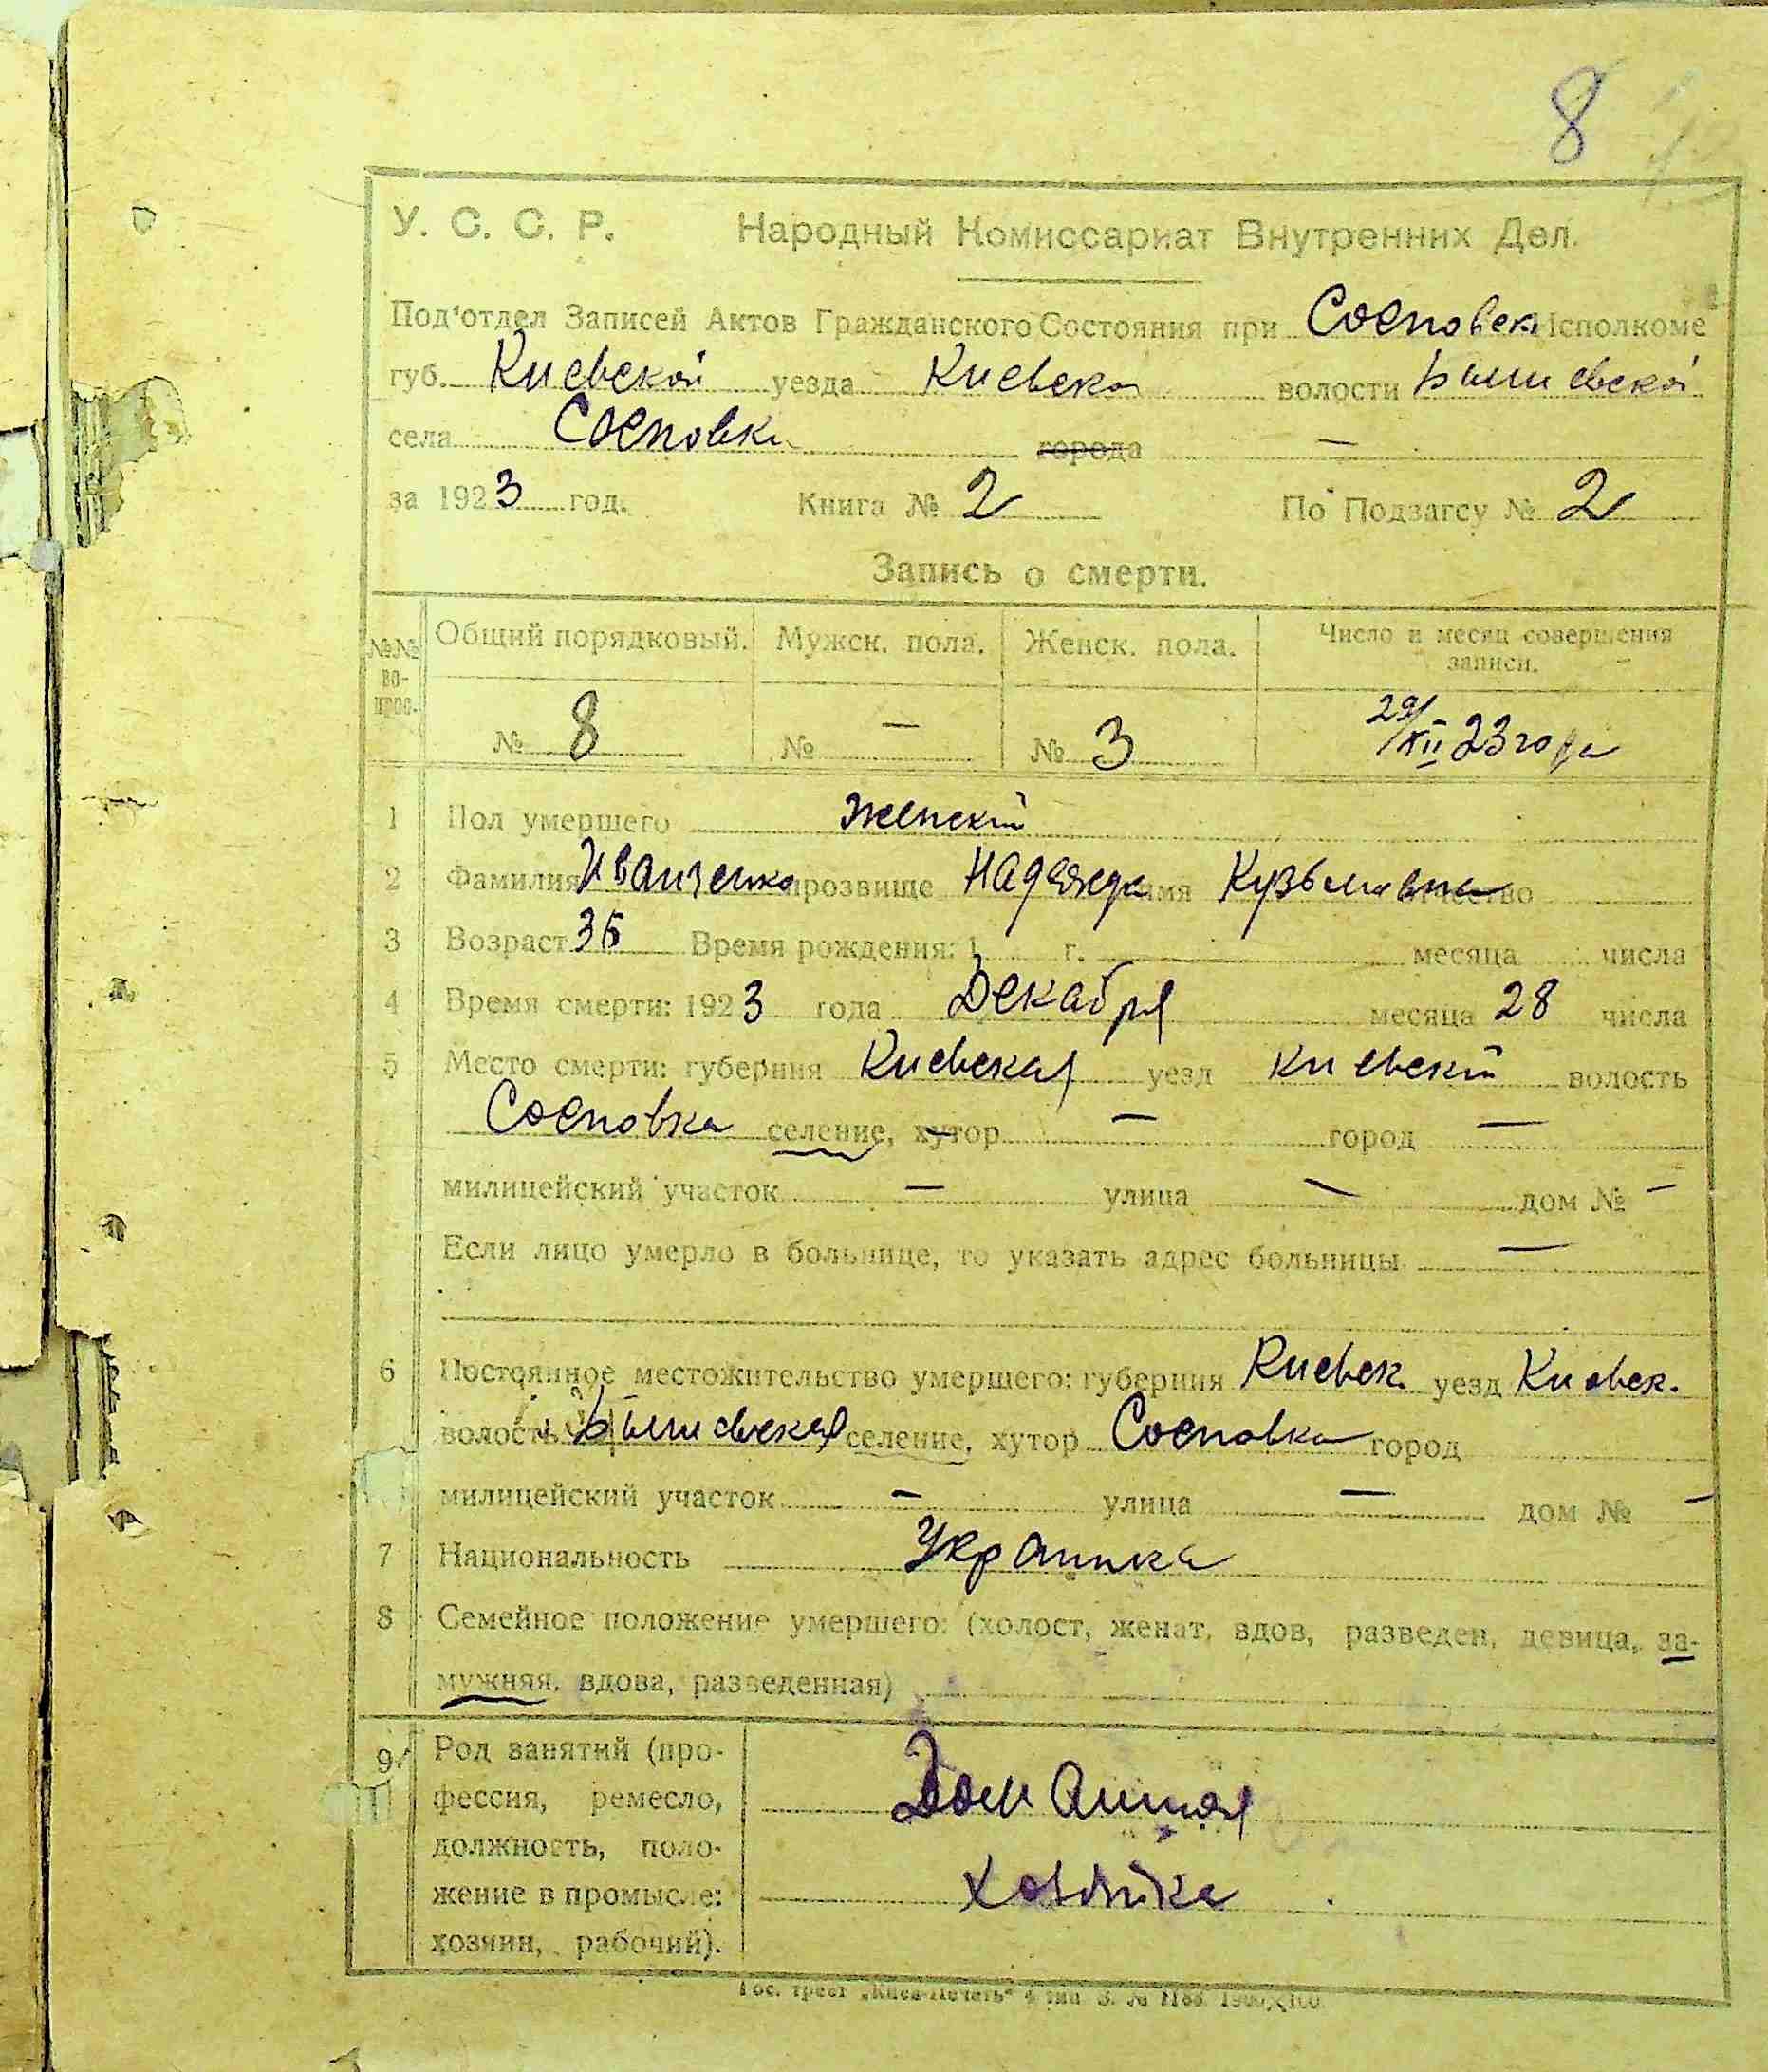 8
У. С. С. Р. Народный Комиссариат Внутренних Дел.
Под'отдел Записей Актов Гражданского Состояния при Сосновск Исполкоме
губ. Киевской уезда Киевско волости Бышевской
села Сосновки города —
за 1923 год. Книга № 2 По Подзагсу № 2
Запись о смерти.
№№ вопрос. Общий порядковый. Мужск. пола. Женск. пола. Число и месяц совершения записи.
№ 8 № — № 3 29/XII 23 года
1 Пол умершего Женский
2 Фамилия Иванченко прозвище Надежда имя Кузьмовна отчество
3 Возраст 36 Время рождения: 1 г. месяца числа
4 Время смерти: 1923 года Декабря месяца 28 числа
5 Место смерти: губерния Киевская уезд Киевский волость
Сосновка селение, хутор — город —
милицейский участок — улица — дом № —
Если лицо умерло в больнице, то указать адрес больницы —
6 Постоянное местожительство умершего: губерния Киевск. уезд Киевск.
волость Бышевская селение, хутор Сосновка город
милицейский участок — улица — дом № —
7 Национальность Украинка
8 Семейное положение умершего: (холост, женат, вдов, разведен, девица, за-
мужняя, вдова, разведенная)
9 Род занятий (про-
фессия, ремесло, Домашняя
должность, поло-
жение в промысле:
хозяин, рабочий).
Гос. трест „Киев-Печать“